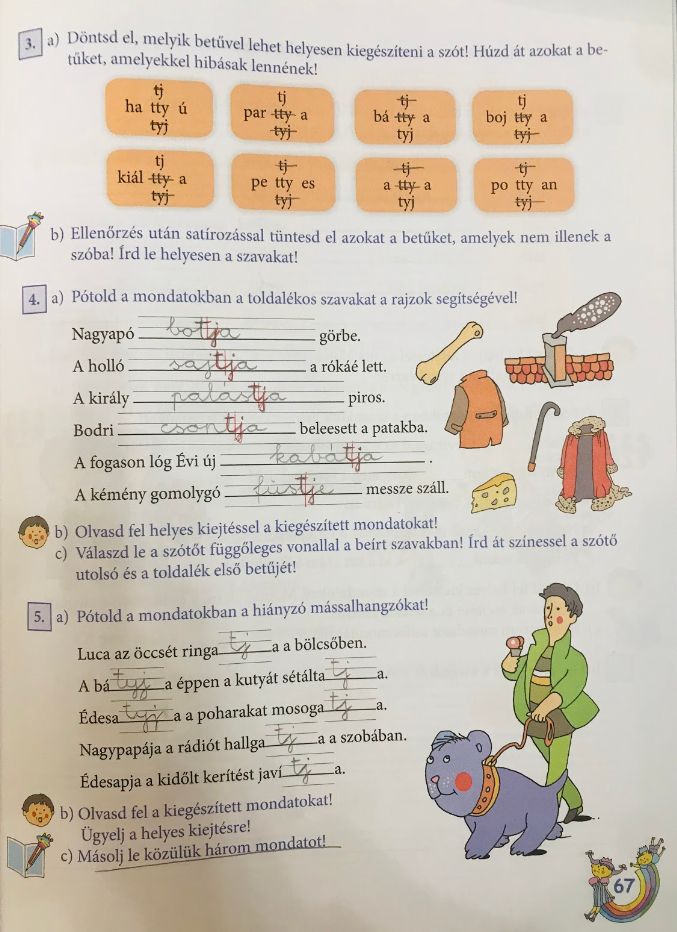 3. a) Döntsd el, melyik betűvel lehet helyesen kiegészíteni a szót! Húzd át azokat a be-
tűket, amelyekkel hibásak lennének!
tj tj tj tj
ha tty ú par tty a bá tty a boj tty a
tyj tyj tyj tyj
tj tj tj tj
kiál tty a pe tty es a tty a po tty an
tyj tyj tyj tyj
b) Ellenőrzés után satírozással tüntesd el azokat a betűket, amelyek nem illenek a
szóba! Írd le helyesen a szavakat!
4. a) Pótold a mondatokban a toldalékos szavakat a rajzok segítségével!
Nagyapó botja görbe.
A holló sajtja a rókáé lett.
A király palástja piros.
Bodri csontja beleesett a patakba.
A fogason lóg Évi új kabátja .
A kémény gomolygó füstje messze száll.
b) Olvasd fel helyes kiejtéssel a kiegészített mondatokat!
c) Válaszd le a szótőt függőleges vonallal a beírt szavakban! Írd át színessel a szótő
utolsó és a toldalék első betűjét!
5. a) Pótold a mondatokban a hiányzó mássalhangzókat!
Luca az öccsét ringa tj a a bölcsőben.
A bá tyj a éppen a kutyát sétálta tj a.
Édesa tyj a a poharakat mosoga tj a.
Nagypapája a rádiót hallga tj a a szobában.
Édesapja a kidőlt kerítést javí tj a.
b) Olvasd fel a kiegészített mondatokat!
Ügyelj a helyes kiejtésre!
c) Másolj le közülük három mondatot!
67